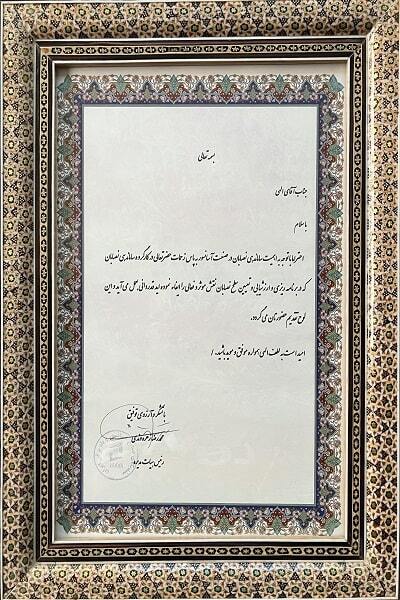 بسمه تعالی
جناب آقای الهی
با سلام
احتراما با توجه به اهمیت ساماندهی نصابان در صنعت آسانسور به پاس زحمات حضرتعالی در کارگروه ساماندهی نصابان
که در برنامه ریزی و ارزشیابی و تعیین سطح نصابان نقش موثر و فعالی را ایفاء نموده اید قدردانی بعمل می آید و این
لوح تقدیم حضورتان می گردد.
امید است به لطف الهی همواره موفق و موید باشید. /
با تشکر و آرزوی توفیق
محمدرضا
رئیس هیات مدیره